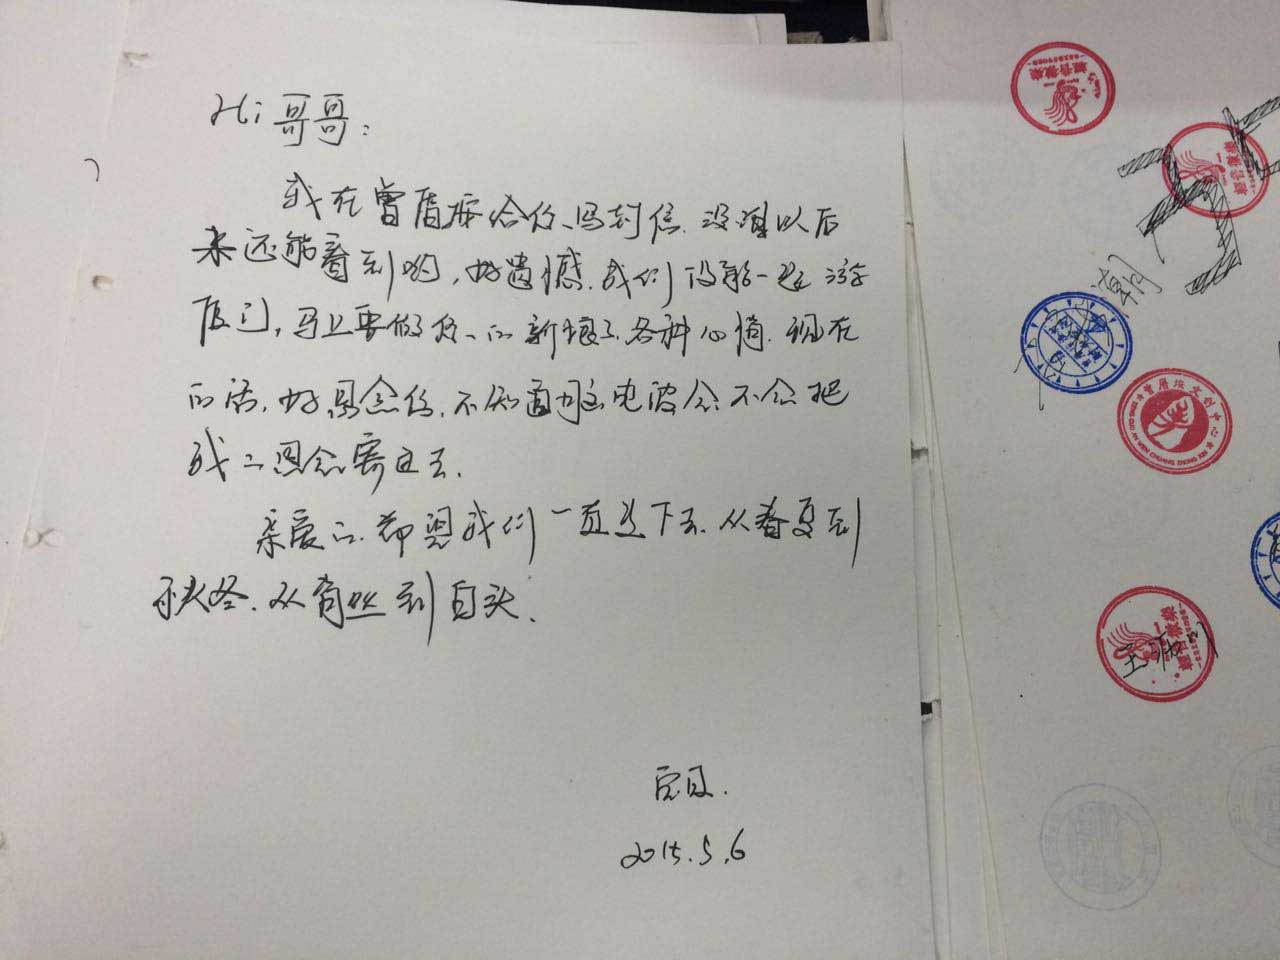 Hi 哥哥：
我在曾厝垵给你写封信. 没准以后
来还能看到哟, 好遗憾. 我们没能一起游
厦门, 马上要做你的新娘了. 各种心情. 现在
的话, 好思念你, 不知道电波会不会把
我的思念寄过去.
亲爱的. 希望我们一直走下去. 从春夏到
秋冬. 从青丝到白头.
2015.5.6
曾厝垵文创中心
ZENG CUO AN WEN CHUANG ZHONG XIN
潮